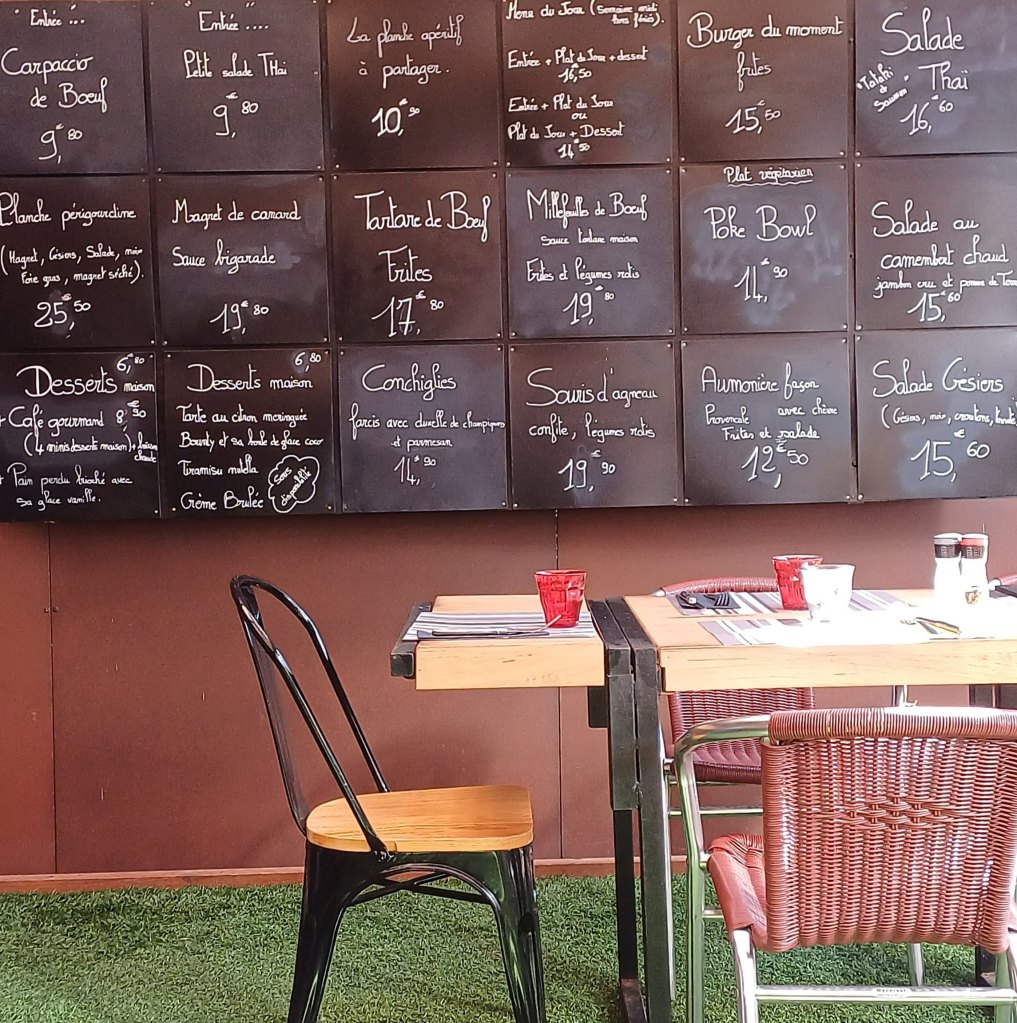 "Entrée"...
Carpaccio
de Boeuf
9,€80
"Entrée"....
Petite salade Thaï
9,€80
La planche apéritif
à partager.
10,€90
Menu du Jour (Semaine midi
hors férié).
Entrée + Plat du Jour + dessert
16,50
Entrée + Plat du Jour
ou
Plat du Jour + Dessert
14€50
Burger du moment
frites
15,€50
Salade
Thaï
"Tataki
de
Saumon"
16,€60
Planche périgourdine
(Magret, Gésiers, Salade, noix
Foie gras, magret séché).
25,€50
Magret de canard
Sauce bigarade
19,€80
Tartare de Boeuf
Frites
17,€80
Millefeuilles de Boeuf
sauce tartare maison
Frites et légumes rotis
19,€80
Plat végétarien
Poke Bowl
14,€90
Salade au
camembert chaud
jambon cru et pomme de Terre
15,€60
6,€80
Desserts maison
+ Café gourmand 8,€90
(4 minis desserts maison) + boisson
chaude
+ Pain perdu brioché avec
sa glace vanille.
6,80
Desserts maison
Tarte au citron meringuée
Bounty et sa boule de glace coco
Tiramisu nutella
Crème Brulée
Conchiglies
farcis avec duxelle de champignons
et parmesan
14,€90
Souris d'agneau
confite, légumes rotis
19,€90
Aumonière façon
Provencale avec chèvre
Frites et salade
12,€50
Salade Gésiers
(Gésiers, noix, croutons, tomate)
15,€60